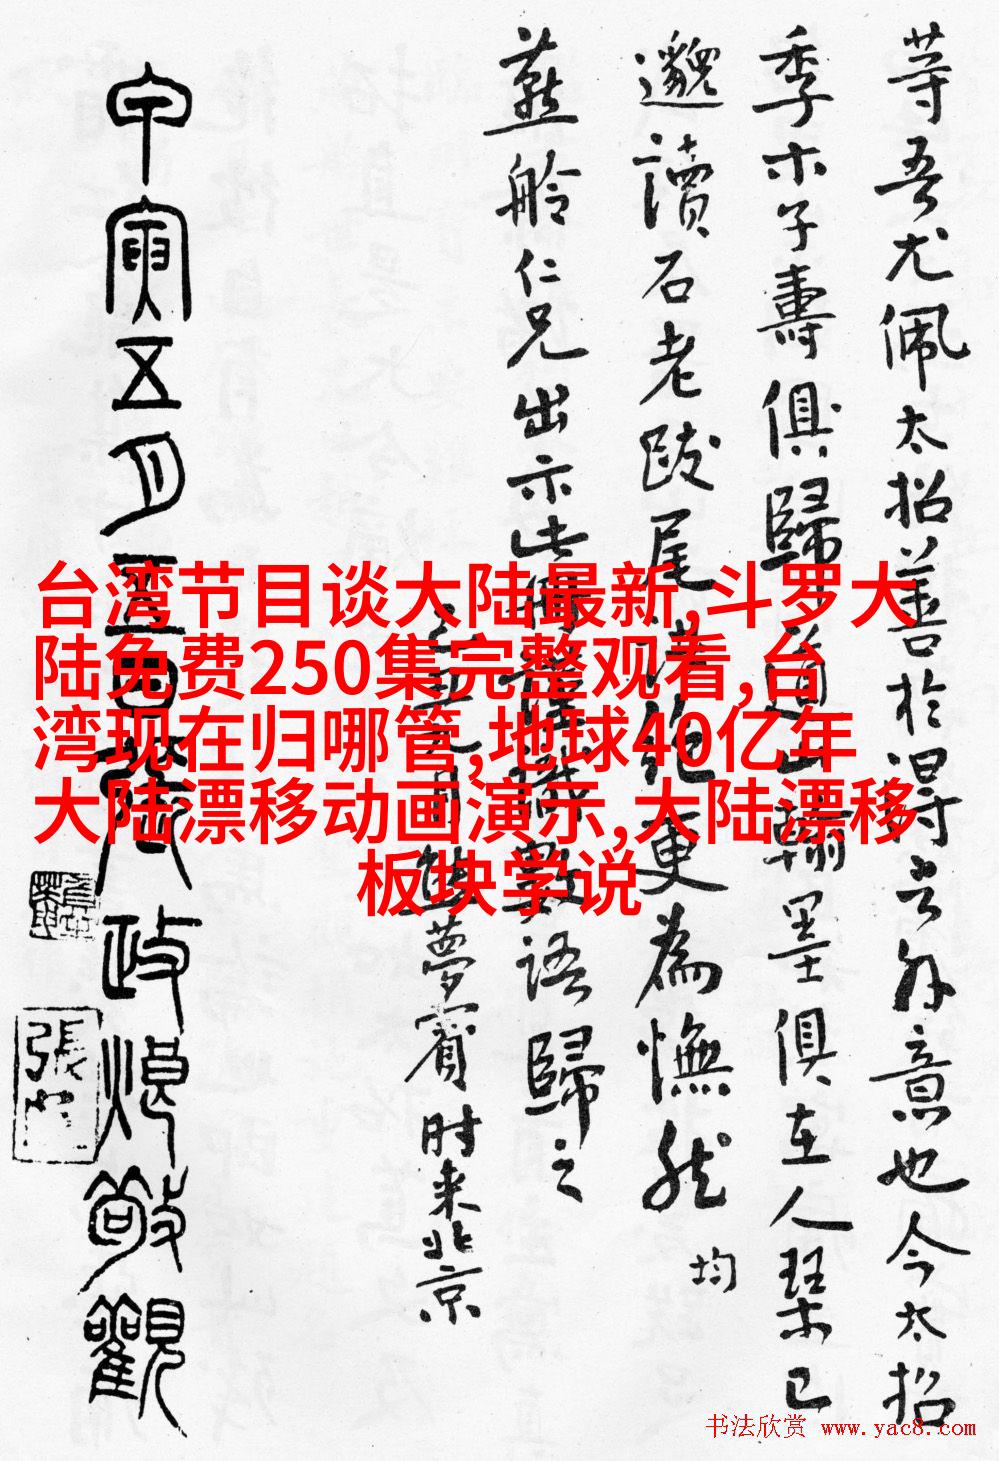 等吾尤佩太招善於得言外意也今太招
季木子壽俱歸道山翰墨俱在人琴已
邈讀石老跋尾更為憮然 均
燕舲仁兄出示此數語歸之
夢賓时来北京
甲寅五月 政煩敬觀
台湾节目谈大陆最新,斗罗大
陆免费250集完整观看,台
湾现在归哪管,地球40亿年
大陆漂移动画演示,大陆漂移
板块学说
书法欣赏 www.yac8.com